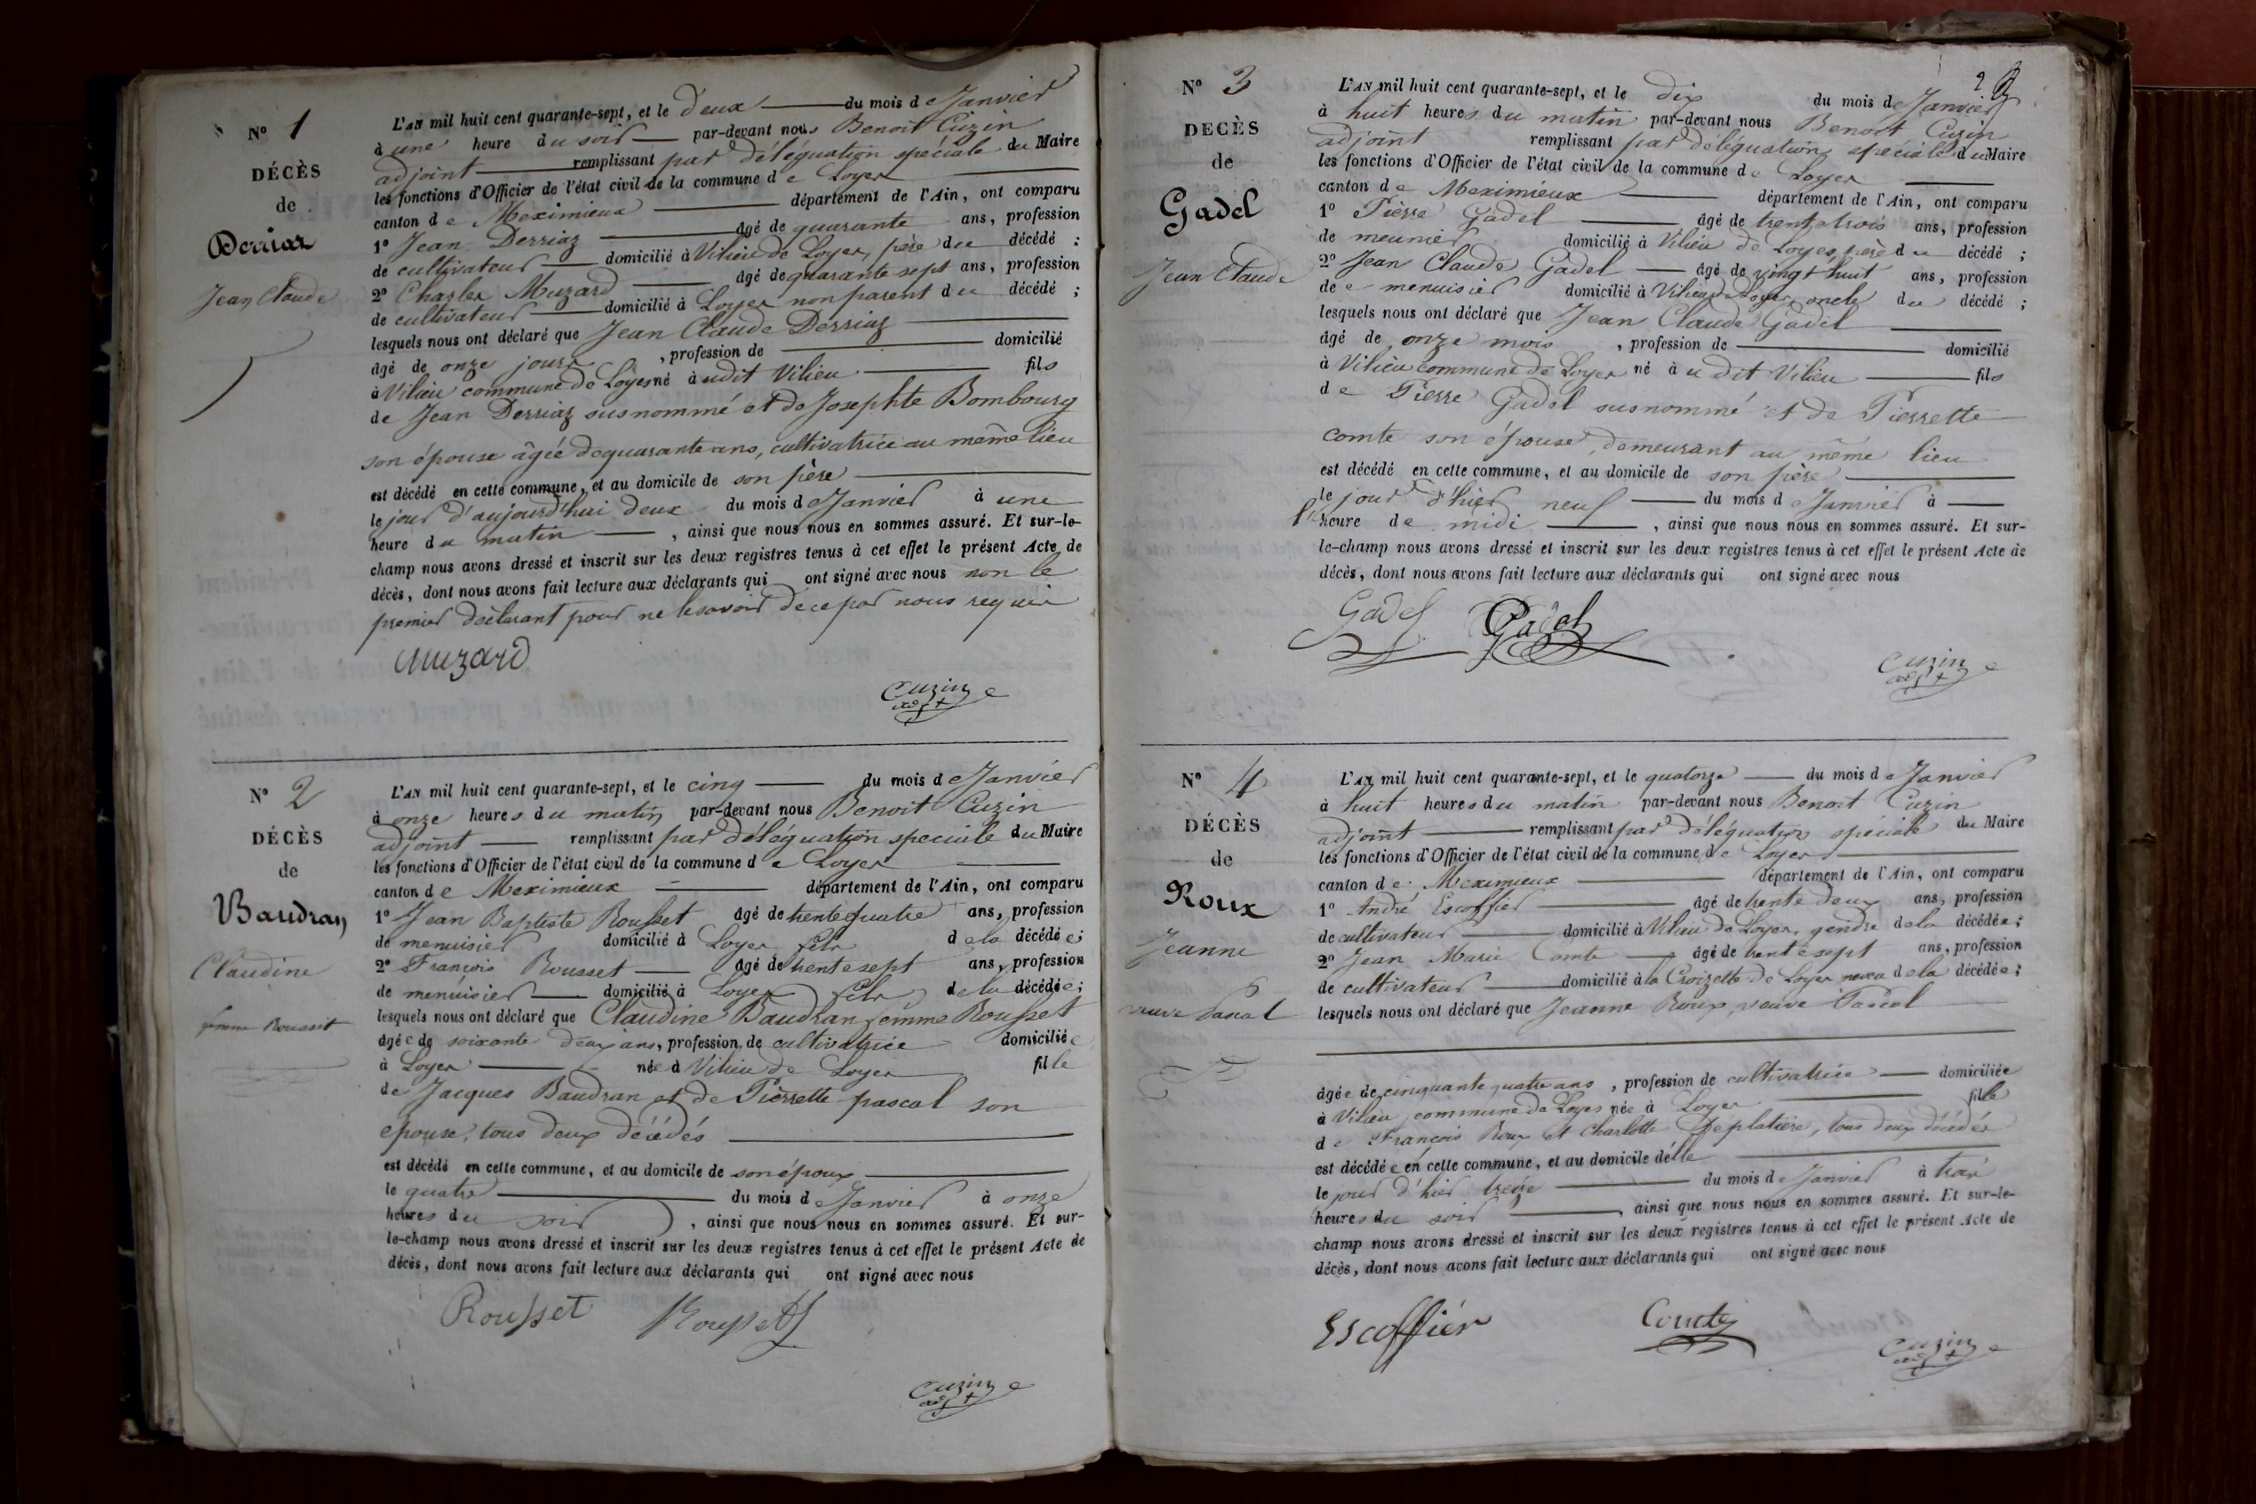 N° 1
DÉCÈS
de
Derriaz
Jean Claude
L'AN mil huit cent quarante-sept, et le deux du mois de Janvier
à une heure du soir par-devant nous Benoit Cuzin
adjoint remplissant par déléguation spéciale du Maire
les fonctions d'Officier de l'état civil de la commune de Loyes
canton de Meximieux département de l'Ain, ont comparu
1° Jean Derriaz âgé de quarante ans, profession
de cultivateur domicilié à Vilieu de Loyes, père du décédé ;
2° Charles Muzard âgé de quarante sept ans, profession
de cultivateur domicilié à Loyes non parent du décédé ;
lesquels nous ont déclaré que Jean Claude Derriaz
âgé de onze jours, profession de domicilié
à Vilieu commune de Loyes né audit Vilieu fils
de Jean Derriaz susnommé et de Josephte Bombourg
son épouse âgée de quarante ans, cultivatrice au même lieu
est décédé en cette commune, et au domicile de son père
le jour d'aujourd'hui deux du mois de Janvier à une
heure du matin, ainsi que nous nous en sommes assuré. Et sur-le-
champ nous avons dressé et inscrit sur les deux registres tenus à cet effet le présent Acte de
décès, dont nous avons fait lecture aux déclarants qui ont signé avec nous non le
premier déclarant pour ne le savoir de ce par nous requis
Muzard
Cuzin
adjt
N° 2
DÉCÈS
de
Baudran
Claudine
femme Rousset
L'AN mil huit cent quarante-sept, et le cinq du mois de Janvier
à onze heures du matin par-devant nous Benoit Cuzin
adjoint remplissant par déléguation speciale du Maire
les fonctions d'Officier de l'état civil de la commune de Loyes
canton de Meximieux département de l'Ain, ont comparu
1° Jean Baptiste Rousset âgé de trente quatre ans, profession
de menuisier domicilié à Loyes fils de la décédée;
2° François Rousset âgé de trente sept ans, profession
de menuisier domicilié à Loyes fils de la décédée;
lesquels nous ont déclaré que Claudine Baudran femme Rousset
âgée de soixante deux ans, profession de cultivatrice domiciliée
à Loyes née à Vilieu de Loyes fille
de Jacques Baudran et de Pierrette pascal son
epouse, tous deux décédés
est décédé en cette commune, et au domicile de son époux
le quatre du mois de Janvier à onze
heures du soir, ainsi que nous nous en sommes assuré. Et sur-
le-champ nous avons dressé et inscrit sur les deux registres tenus à cet effet le présent Acte de
décès, dont nous avons fait lecture aux déclarants qui ont signé avec nous
Rousset Rousset
Cuzin
adjt
2
N° 3
DECÈS
de
Gadel
Jean Claude
L'AN mil huit cent quarante-sept, et le dix du mois de Janvier
à huit heures du matin par-devant nous Benoit Cuzin
adjoint remplissant par déléguation spéciale du Maire
les fonctions d'Officier de l'état civil de la commune de Loyes
canton de Meximieux département de l'Ain, ont comparu
1° Pierre Gadel âgé de trente trois ans, profession
de meunier domicilié à Vilieu de Loyes, père du décédé ;
2° Jean Claude Gadel âgé de vingt huit ans, profession
de menuisier domicilié à Vilieu de Loyes oncle du décédé ;
lesquels nous ont déclaré que Jean Claude Gadel
âgé de onze mois, profession de domicilié
à Vilieu commune de Loyes né à udit Vilieu fils
de Pierre Gadel susnommé et de Pierrette
comte son épouse, demeurant au même lieu
est décédé en cette commune, et au domicile de son père
le jour d'hier neuf du mois de Janvier à
heure de midi, ainsi que nous nous en sommes assuré. Et sur-
le-champ nous avons dressé et inscrit sur les deux registres tenus à cet effet le présent Acte de
décès, dont nous avons fait lecture aux déclarants qui ont signé avec nous
Gadel Gadel
Cuzin
adjt
N° 4
DÉCÈS
de
Roux
Jeanne
veuve Pascal
L'AN mil huit cent quarante-sept, et le quatorze du mois de Janvier
à huit heures du matin par-devant nous Benoit Cuzin
adjoint remplissant par déléguation spéciale du Maire
les fonctions d'Officier de l'état civil de la commune de Loyes
canton de Meximieux département de l'Ain, ont comparu
1° André Escoffier âgé de trente deux ans, profession
de cultivateur domicilié à Vilieu de Loyes, gendre de la décédée ;
2° Jean Marie Comte âgé de trente sept ans, profession
de cultivateur domicilié à la Croizette de Loyes neveu de la décédée ;
lesquels nous ont déclaré que Jeanne Roux, veuve Pascal
âgée de cinquante quatre ans, profession de cultivatrice domiciliée
à Vilieu commune de Loyes née à Loyes fille
de François Roux et Charlotte Deplatière, tous deux décédés
est décédée en cette commune, et au domicile d'elle
le jour d'hier treize du mois de Janvier à trois
heures du soir, ainsi que nous nous en sommes assuré. Et sur-le-
champ nous avons dressé et inscrit sur les deux registres tenus à cet effet le présent Acte de
décès, dont nous avons fait lecture aux déclarants qui ont signé avec nous
Escoffier Comte
Cuzin
adjt